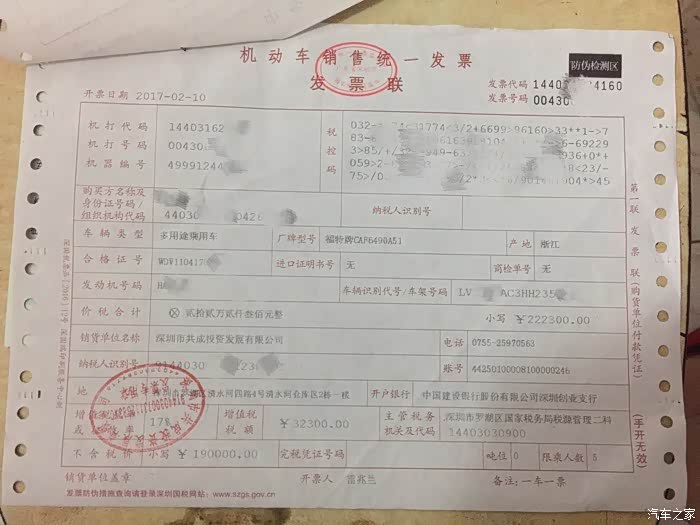 机动车销售统一发票
发票联
防伪检测区
开票日期 2017-02-10
发票代码 1440 4160
发票号码 00430
机打代码 14403162
机打号码 00430
机器编号 49991244
税控码
购买方名称及身份证号码/组织机构代码 44030 0426
纳税人识别号
车辆类型 多用途乘用车 厂牌型号 福特牌CAF6490A51 产地 浙江
合格证号 WDV11041 进口证明书号 无 商检单号 无
发动机号码 车辆识别代号/车架号码 LV AC3HH235
价税合计 ⊗ 贰拾贰万贰仟叁佰元整 小写 ¥222300.00
销货单位名称 深圳市共成投资发展有限公司 电话 0755-25970563
纳税人识别号 账号 44250100008100000246
地 清水河四路4号清水河仓库区2栋一楼 开户银行 中国建设银行股份有限公司深圳创业支行
增值税 17% 增值税税额 ¥32300.00 主管税务机关及代码 深圳市罗湖区国家税务局税源管理二科 14403030900
不含税价 小写 ¥190000.00 完税凭证号码 吨位 0 限乘人数 5
销货单位盖章 开票人 雷兆兰 备注:一车一票
发票防伪措施查询请登录深圳国税网站:www.szgs.gov.cn
第一联 发票联(购货单位付款凭证)
(手开无效)
汽车之家